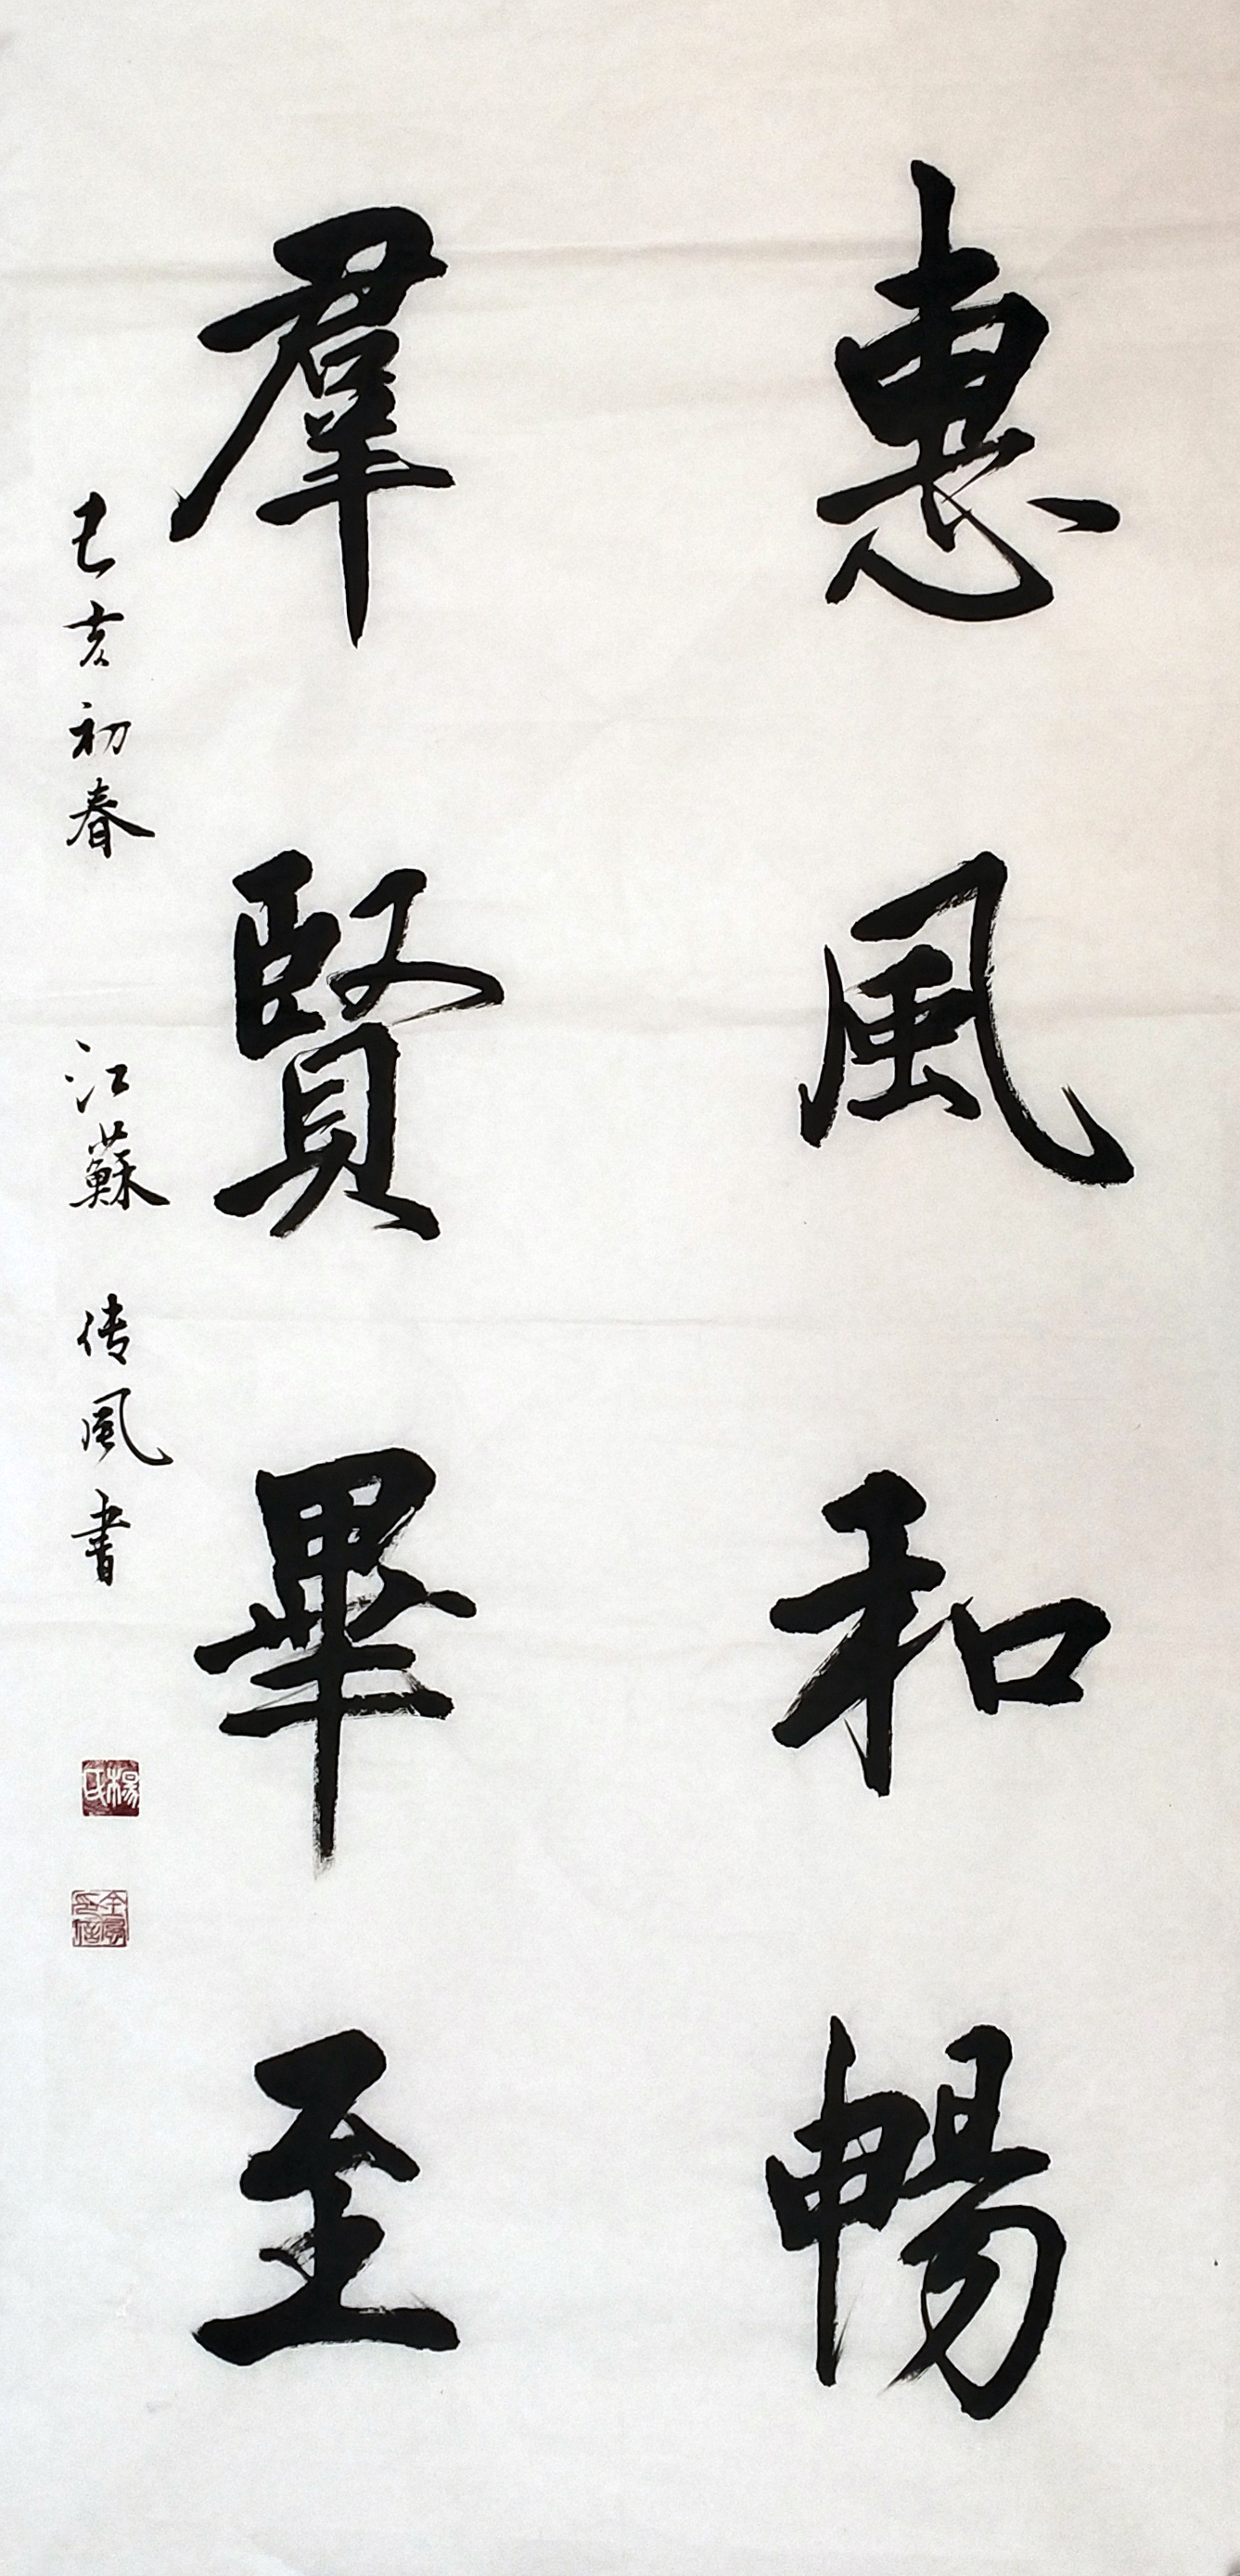 惠風和暢
羣賢畢至
己亥初春 江蘇 传風書
楊氏